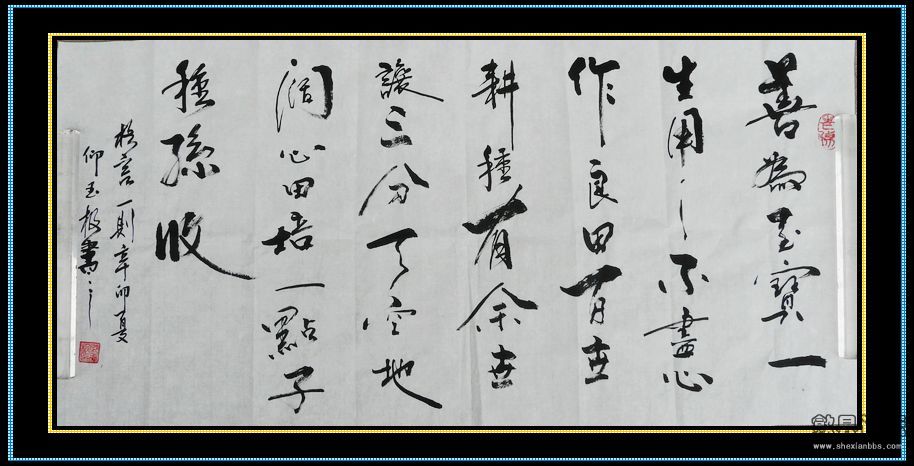 善為至寶一
生用之不盡心
作良田百世
耕種有余世
讓三分天空地
闊心田培一點子
種孫收
格言一則辛卯夏
仰玉書之
www.shexianbbs.com